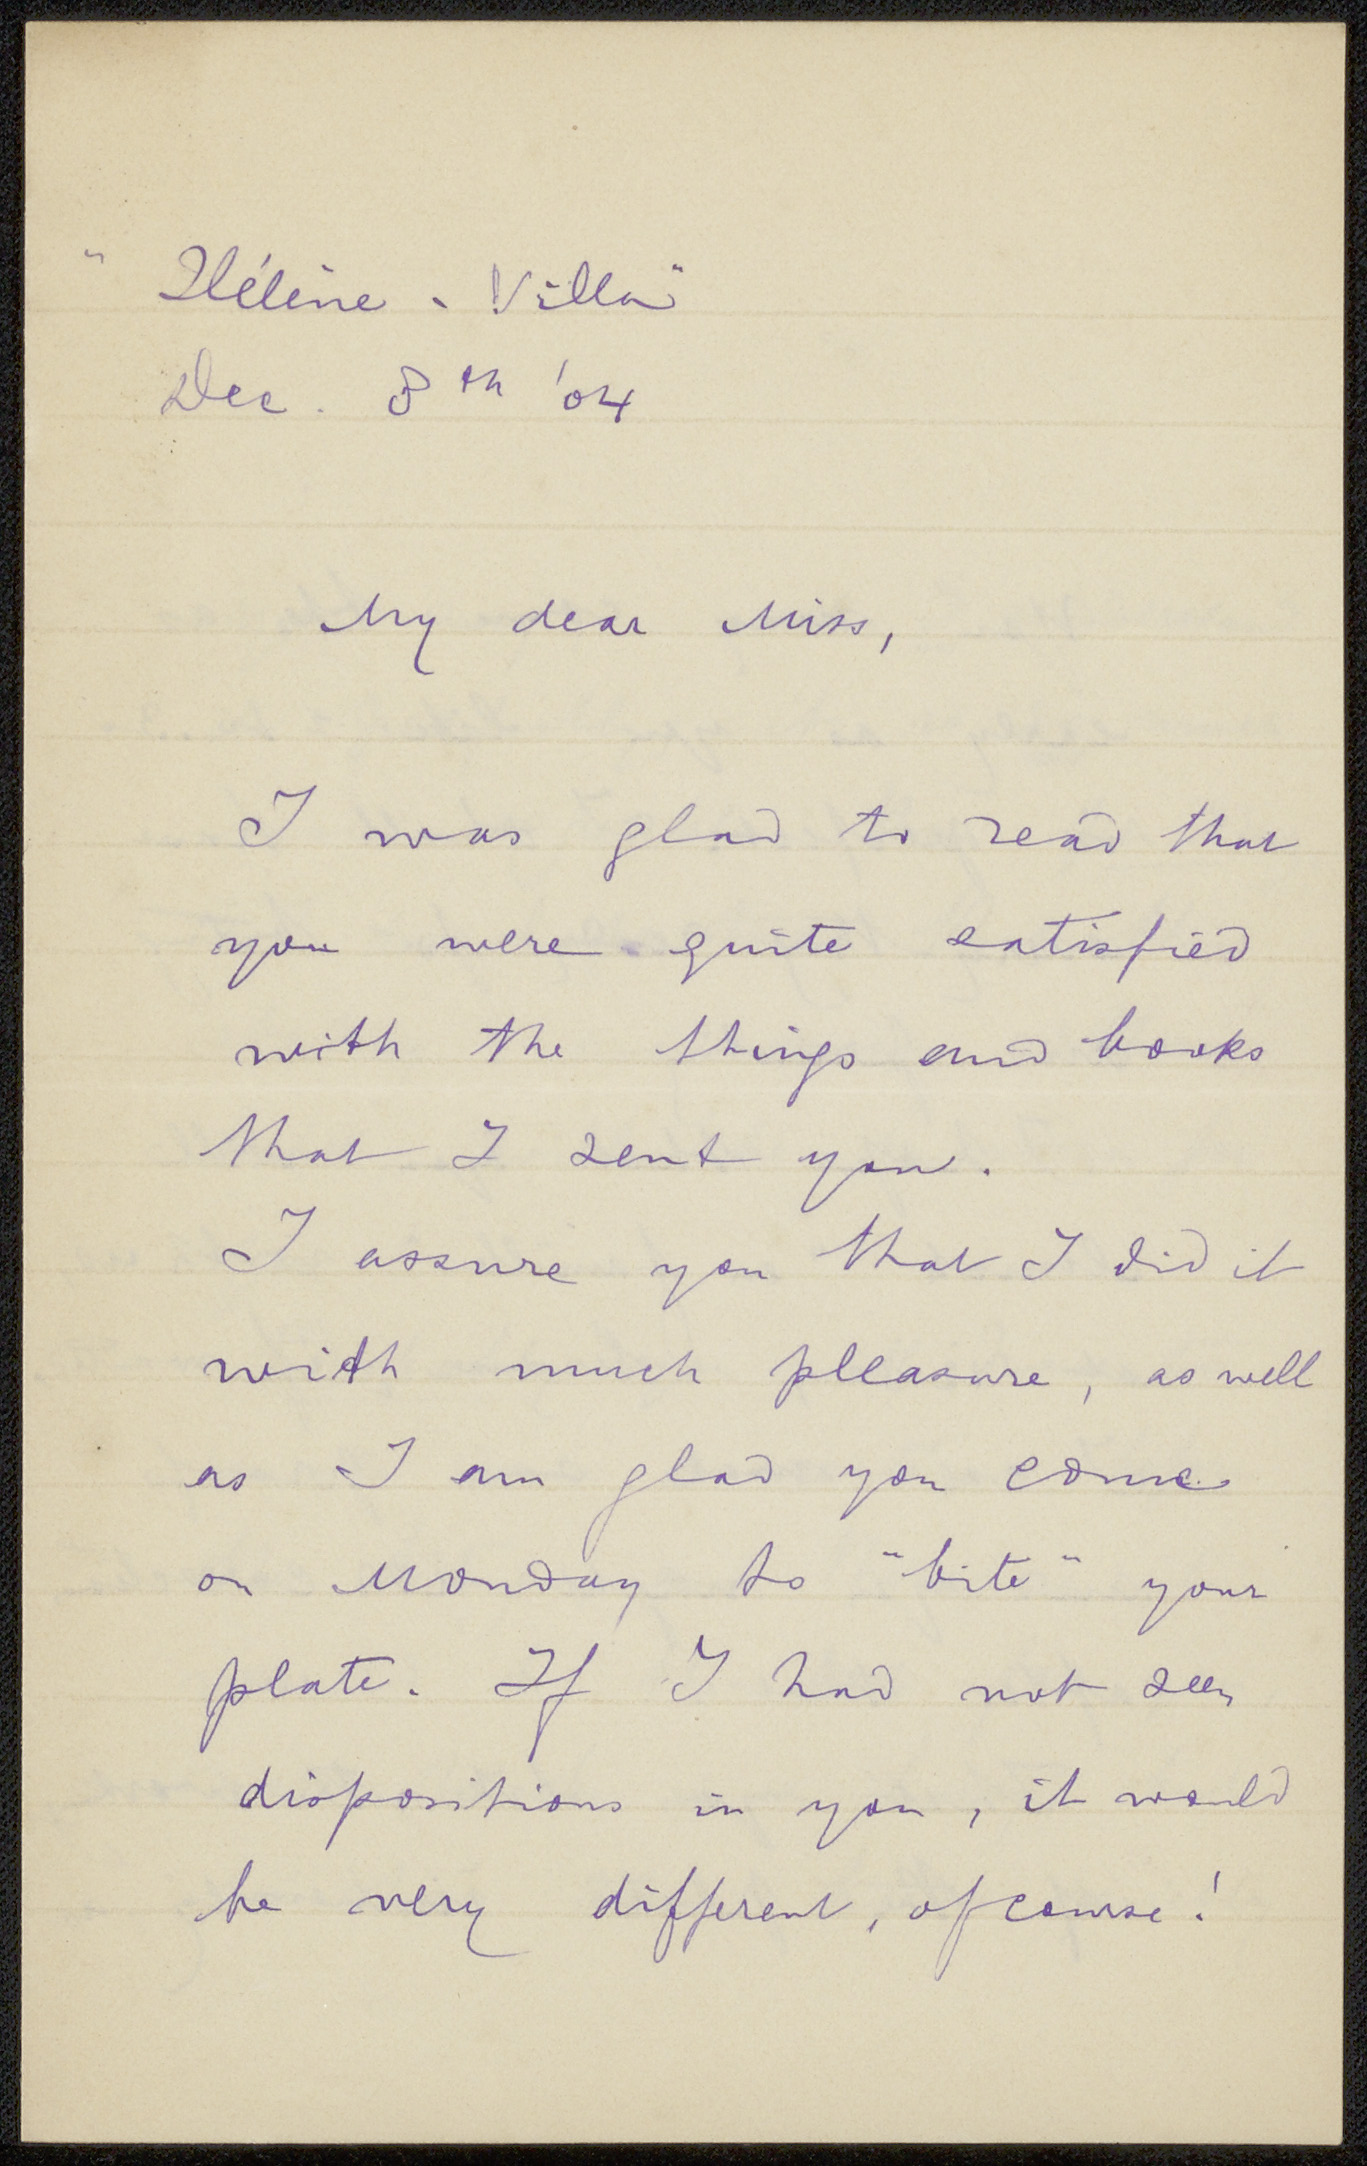 " Hélène - Villa"
Dec. 8th '04
My dear Miss,
I was glad to read that
you were quite satisfied
with the things and books
that I sent you.
I assure you that I did it
with much pleasure, as well
as I am glad you come
on Monday to "bite" your
plate. If I had not seen
dispositions in you, it would
be very different, of course!